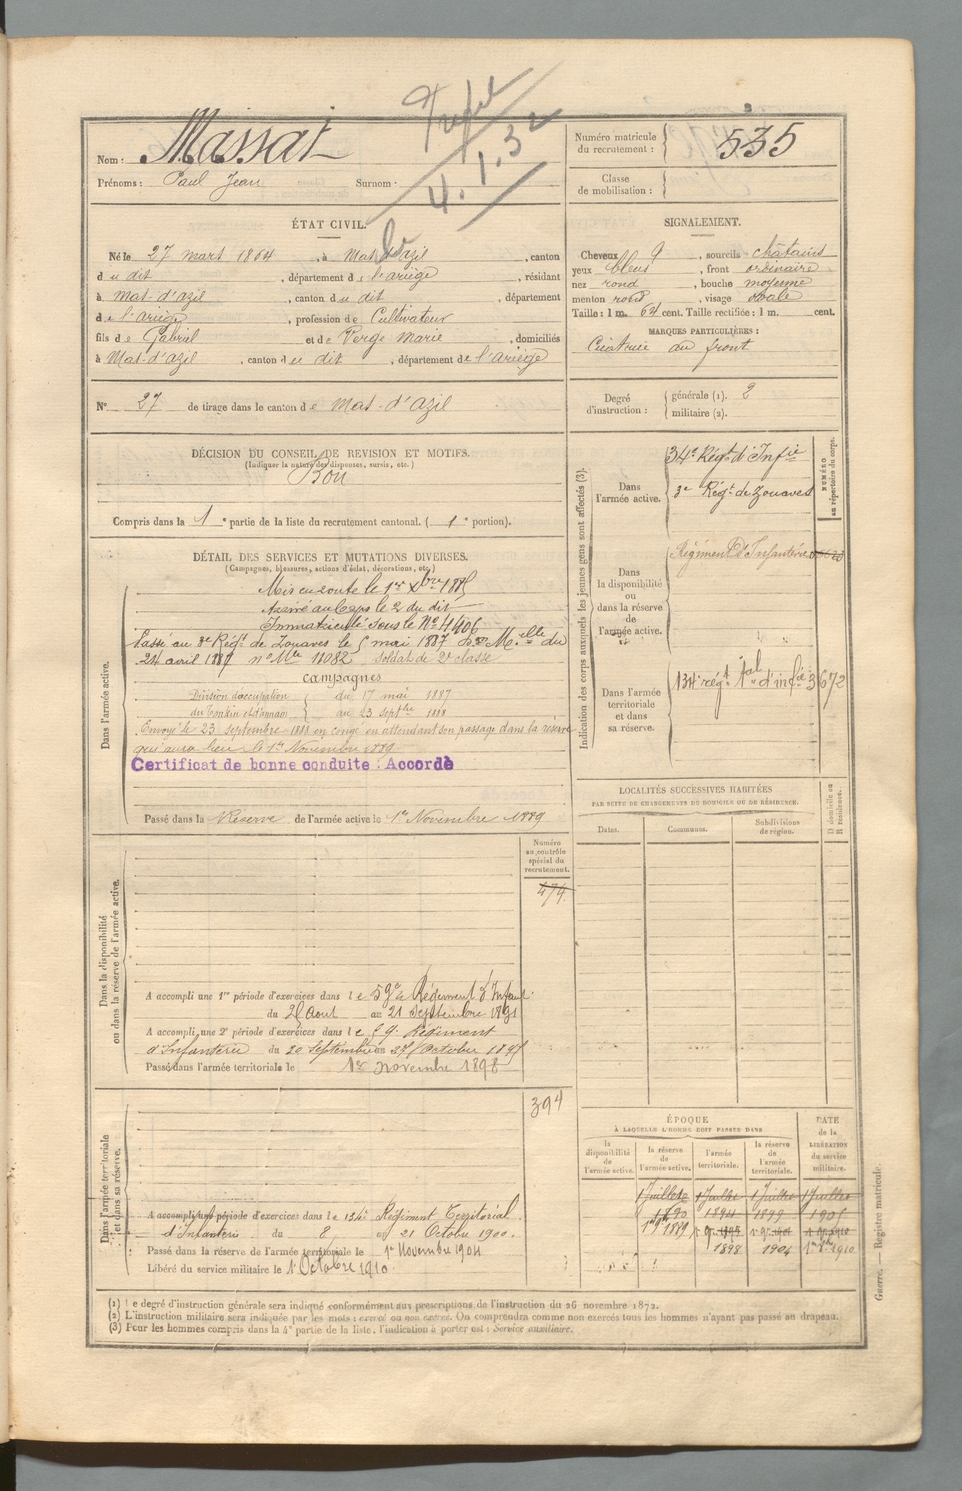 4.1.32
Nom : Massat
Prénoms : Paul Jean Surnom :
Numéro matricule du recrutement : 535
Classe de mobilisation :
ÉTAT CIVIL.
Né le 27 mars 1864, à Mas d'azil, canton
du dit, département de l'ariège, résidant
à Mas-d'azil, canton du dit, département
de l'ariège, profession de Cultivateur
fils de Gabriel et de Verge Marie, domiciliés
à Mas-d'azil, canton du dit, département de l'Ariège
N° 27 de tirage dans le canton de Mas-d'azil
SIGNALEMENT.
Cheveux, sourcils chatains
yeux bleus, front ordinaire
nez rond, bouche moyenne
menton rond, visage ovale
Taille : 1 m. 64 cent. Taille rectifiée : 1 m. cent.
MARQUES PARTICULIÈRES :
Cicatrice au front
Degré d'instruction : générale (1). 2
militaire (2).
DÉCISION DU CONSEIL DE REVISION ET MOTIFS.
(Indiquer la nature des dispenses, sursis, etc.)
Bon
Compris dans la 1e partie de la liste du recrutement cantonal. (1e portion).
DÉTAIL DES SERVICES ET MUTATIONS DIVERSES.
(Campagnes, blessures, actions d'éclat, décorations, etc.)
Dans l'armée active.
Mis en route le 1er Xbre 1885
Arrivé au Corps le 2 du dit
Immatriculé sous le N° 4406
Passé au 3e Régt de Zouaves le 5 mai 1887 Don Melle du
24 avril 1887 n° Mle 11082 soldat de 2e classe
Campagnes
Division d'occupation du 17 mai 1887
du Tonkin et d'annam au 23 Septbre 1888
Envoyé le 23 Septembre 1888 en congé en attendant son passage dans la réserve
qui aura lieu le 1er Novembre 1889
Certificat de bonne conduite : Accordé
Passé dans la Réserve de l'armée active le 1er Novembre 1889
Indication des corps auxquels les jeunes gens sont affectés (3).
NUMÉRO au répertoire du corps.
Dans l'armée active.
34e Régt d'Infie
3e Régt de Zouaves
Dans la disponibilité ou dans la réserve de l'armée active.
Régiment d'Infanterie
Dans l'armée territoriale et dans sa réserve.
134 régt tal d'infie 3672
LOCALITÉS SUCCESSIVES HABITÉES
PAR SUITE DE CHANGEMENTS DE DOMICILE OU DE RÉSIDENCE.
Dates. Communes. Subdivisions de région. D domicile ou R résidence.
Dans la disponibilité ou dans la réserve de l'armée active.
Numéro au contrôle spécial du recrutement.
474
A accompli une 1re période d'exercices dans le 59e de Régiment d'Infant.
du 25 Aout au 21 Septembre 1891
A accompli une 2e période d'exercices dans le 59 Régiment
d'Infanterie du 30 Septembre au 27 Octobre 1895
Passé dans l'armée territoriale le 1er novembre 1898
Dans l'armée territoriale et dans sa réserve.
394
A accompli une période d'exercices dans le 134e Régiment Territorial
d'Infanterie du 8 au 21 Octobre 1900.
Passé dans la réserve de l'armée territoriale le 1er Novembre 1904
Libéré du service militaire le 1er Octobre 1910
ÉPOQUE
À LAQUELLE L'HOMME DOIT PASSER DANS
la disponibilité de l'armée active.
la réserve de l'armée active.
l'armée territoriale.
la réserve de l'armée territoriale.
DATE de la LIBÉRATION du service militaire.
1 Juillet 1 Juillet 1 Juillet 1 Juillet
1890 1894 1899 1905
1er 9bre 1889
1898 1904 1910
Guerre. — Registre matricule.
(1) Le degré d'instruction générale sera indiqué conformément aux prescriptions de l'instruction du 26 novembre 1872.
(2) L'instruction militaire sera indiquée par les mots : exercé ou non exercé. On comprendra comme non exercés tous les hommes n'ayant pas passé au drapeau.
(3) Pour les hommes compris dans la 4e partie de la liste, l'indication à porter est : Service auxiliaire.